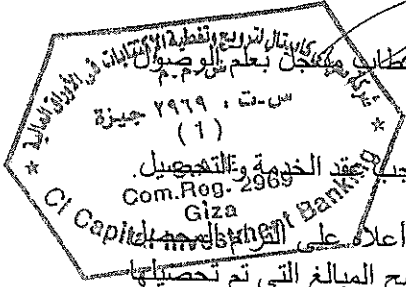 خطاب مسجل بعلم الوصول
شركة سي آي كابيتال لترويج وتغطية الاكتتابات في الأوراق المالية
ش.م.م
س.ت : ٢٩٦٩ جيزة
(1)
عقد الخدمة والتحصيل.
Com.Reg. 2969
Giza
CI Capital Investment Banking
أعلاه على التزام
المبالغ التي تم تحصيلها